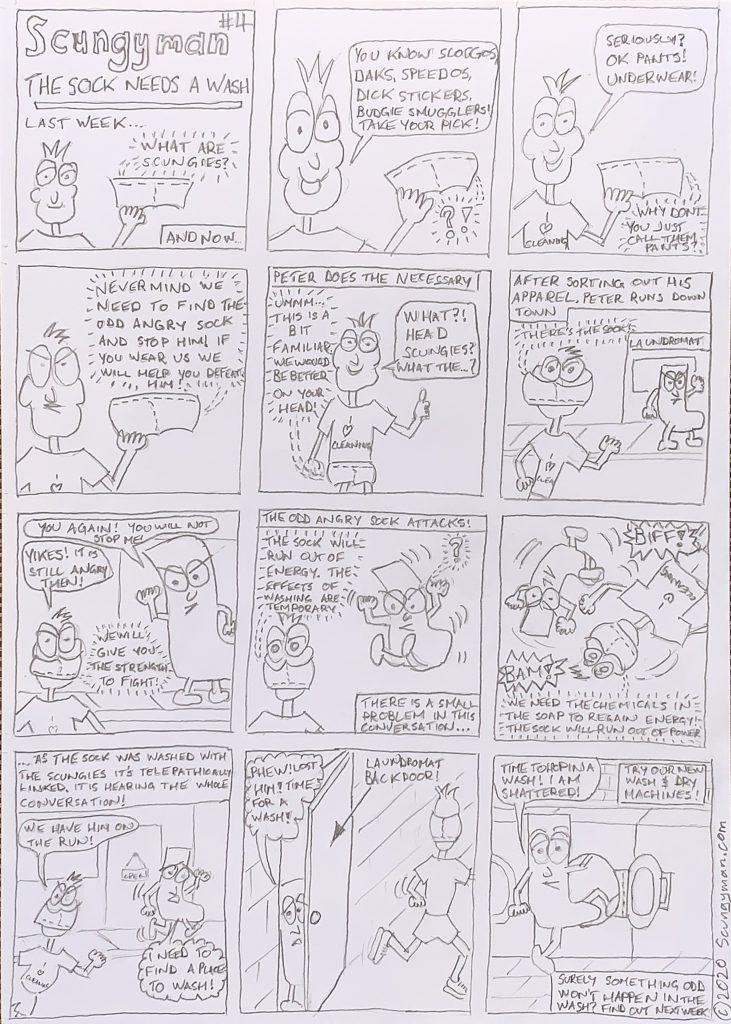 Scungyman #4
THE SOCK NEEDS A WASH
LAST WEEK...
WHAT ARE
SCUNGIES?
AND NOW...
YOU KNOW SLOGGOS,
DAKS, SPEEDOS,
DICK STICKERS,
BUDGIE SMUGGLERS!
TAKE YOUR PICK!
?!
SERIOUSLY?
OK PANTS!
UNDERWEAR!
CLEANING
WHY DON'T
YOU JUST
CALL THEM
PANTS?
NEVERMIND WE
NEED TO FIND THE
ODD ANGRY SOCK
AND STOP HIM! IF
YOU WEAR US WE
WILL HELP YOU DEFEAT
HIM!
PETER DOES THE NECESSARY!
UMMM...
THIS IS A
BIT
FAMILIAR.
WE WOULD
BE BETTER
ON YOUR
HEAD!
WHAT?!
HEAD
SCUNGIES?
WHAT THE...?
CLEANING
AFTER SORTING OUT HIS
APPAREL, PETER RUNS DOWN
TOWN
THERE'S THE SOCK!
LAUNDROMAT
CLEA
YOU AGAIN! YOU WILL NOT
STOP ME!
YIKES! IT IS
STILL ANGRY
THEN!
WE WILL
GIVE YOU
THE STRENGTH
TO FIGHT!
THE ODD ANGRY SOCK ATTACKS!
THE SOCK WILL
RUN OUT OF
ENERGY. THE
EFFECTS OF
WASHING ARE
TEMPORARY
?
THERE IS A SMALL
PROBLEM IN THIS
CONVERSATION...
BIFF!
CLEANING
BAM!
WE NEED THE CHEMICALS IN
THE SOAP TO REGAIN ENERGY!
THE SOCK WILL RUN OUT OF POWER
... AS THE SOCK WAS WASHED WITH
THE SCUNGIES IT'S TELEPATHICALLY
LINKED. IT IS HEARING THE WHOLE
CONVERSATION!
WE HAVE HIM ON
THE RUN!
OPEN
CLEANING
I NEED TO
FIND A PLACE
TO WASH!
PHEW! LOST
HIM! TIME
FOR A
WASH!
LAUNDROMAT
BACKDOOR!
TIME TO HOP IN A
WASH! I AM
SHATTERED!
TRY OUR NEW
WASH & DRY
MACHINES!
SURELY SOMETHING ODD
WON'T HAPPEN IN THE
WASH? FIND OUT NEXT WEEK
©2020 Scungyman.com